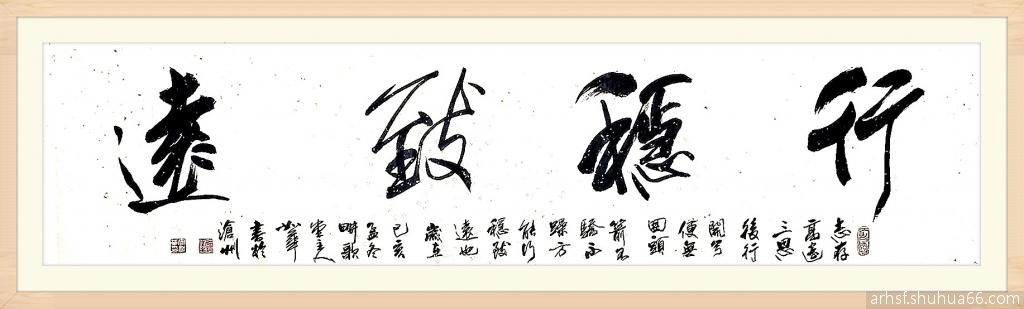 行穩致遠
志存
高遠
三思
後行
開弓
便無
回頭
箭不
驕不
躁方
能行
穩致
遠也
歲在
己亥
孟冬
畊歌
堂主人
華
書於
滄州
arhsf.shuhua66.com